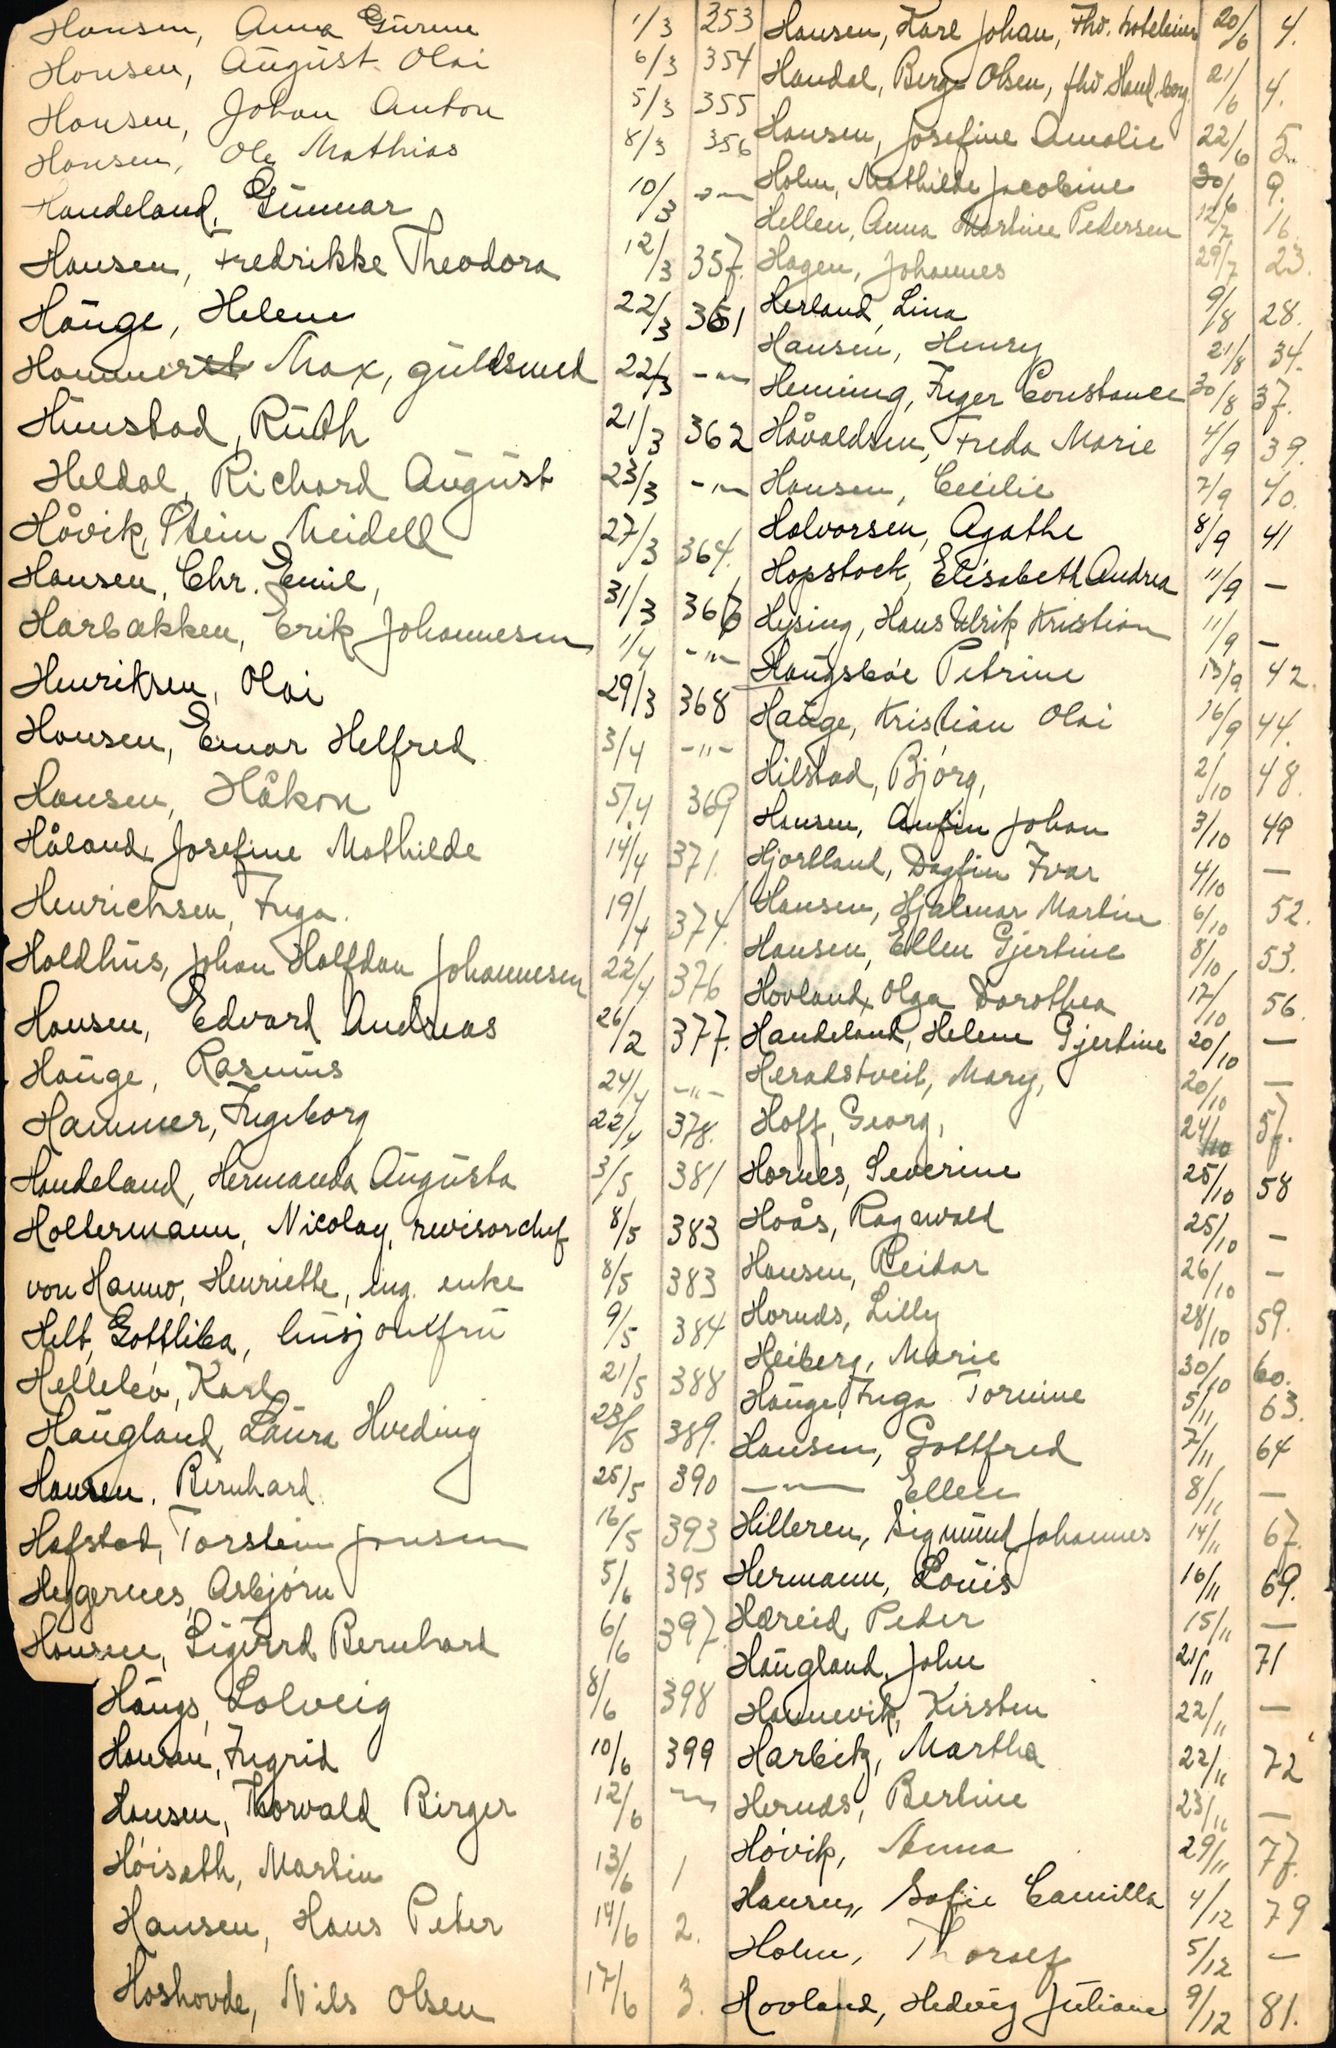 Hansen, Anna Gurine 1/3 253
Hansen, August Olai 6/3 354
Hansen, Johan Anton 5/3 355
Hansen, Ole Mathias 8/3 356
Handeland, Gunnar 10/3 -"-
Hansen, Fredrikke Theodora 12/3 357.
Hauge, Helene 22/3 361
Hammer Max, guldsmed 22/3 -"-
Hunstad, Ruth 21/3 362
Heldal, Richard August 23/3 -"-
Håvik, Stein Meidell 27/3 364.
Hansen, Chr. Emil, 31/3 366
Harbakken, Erik Johannesen 1/4 -"-
Henriksen, Olai 29/3 368
Hansen, Einar Helfred 3/4 -"-
Hansen, Håkon 5/4 369
Håland, Josefine Mathilde 14/4 371.
Henrichsen, Inga. 19/4 374.
Holdhus, Johan Halfdan Johannesen 22/4 376
Hansen, Edvard Andreas 26/2 377.
Hauge, Rasmus 24/4 -"-
Hammer, Ingeborg 22/4 378.
Handeland, Hermanda Augusta 3/5 381
Holtermann, Nicolay, revisorchef 8/5 383
von Hanno, Henriette, ing. enke 8/5 383
Helt, Gottliba, husjomfru 9/5 384
Hellebø, Karl 21/5 388
Haugland, Laura Hveding 23/5 389.
Hansen, Bernhard. 25/5 390
Hafstad, Torstein Jonsen 16/5 393
Heggernes, Asbjørn 5/6 395
Hansen, Sigurd Bernhard 6/6 397.
Haugs, Solveig 8/6 398
Hansen, Ingrid 10/6 399
Hansen, Thorvald Birger 12/6 -"-
Høisæth, Martin 13/6 1
Hansen, Hans Peter 14/6 2.
Hoshovde, Nils Olsen 17/6 3.
Hansen, Karl Johan, fhv. hoteleier 20/6 4.
Handal, Berge Olsen, fhv Hand.borg. 21/6 4.
Hansen, Josefine Amalie 22/6 5.
Holm, Mathilde Jacobine 30/6 9.
Hellen, Anna Martine Pedersen 12/7 16
Hagen, Johannes 29/7 23.
Herland, Lina 9/8 28.
Hansen, Henry 21/8 34.
Henning, Inger Constance 30/8 37.
Håvaldsen, Freda Marie 4/9 39.
Hansen, Cecilie 7/9 40.
Halvorsen, Agathe 8/9 41
Hopstock, Elisabeth Andrea 11/9 -
Hysing, Hans Ulrik Kristian 11/9 -
Haugsbøe Petrine 13/9 42.
Hauge, Kristian Olai 16/9 44.
Hilstad, Bjørg, 2/10 48.
Hansen, Anfin Johan 3/10 49
Hjortland, Dagfin Ivar 4/10 -
Hansen, Hjalmar Martin 6/10 52.
Hansen, Ellen Gjertine 8/10 53.
Hovland, Olga Dorothea 17/10 56.
Handeland, Helene Gjertine 20/10 -
Heradstveit, Mary, 20/10 -
Hoff, Georg, 24/10 57.
Hornes, Severine 25/10 58
Hoås, Ragnvald 25/10 -
Hansen, Reidar 26/10 -
Hornds, Lilly 28/10 59.
Heiberg, Marie 30/10 60.
Hauge, Inga Tormine 5/11 63.
Hansen, Gottfred 7/11 64
-"- Ellen 8/11 -
Hilleren, Sigmund Johannes 14/11 67.
Hermann, Louis 16/11 69.
Hæreid, Peder 15/11 -
Haugland, John 21/11 71
Hannevik, Kirsten 22/11 -
Harbitz, Martha 22/11 72
Hernds, Bertine 23/11 -
Høvik, Anna 29/11 77.
Hansen, Sofie Camilla 4/12 79
Holm, Thoralf 5/12 -
Hovland, Hedvig Juliane 9/12 81.